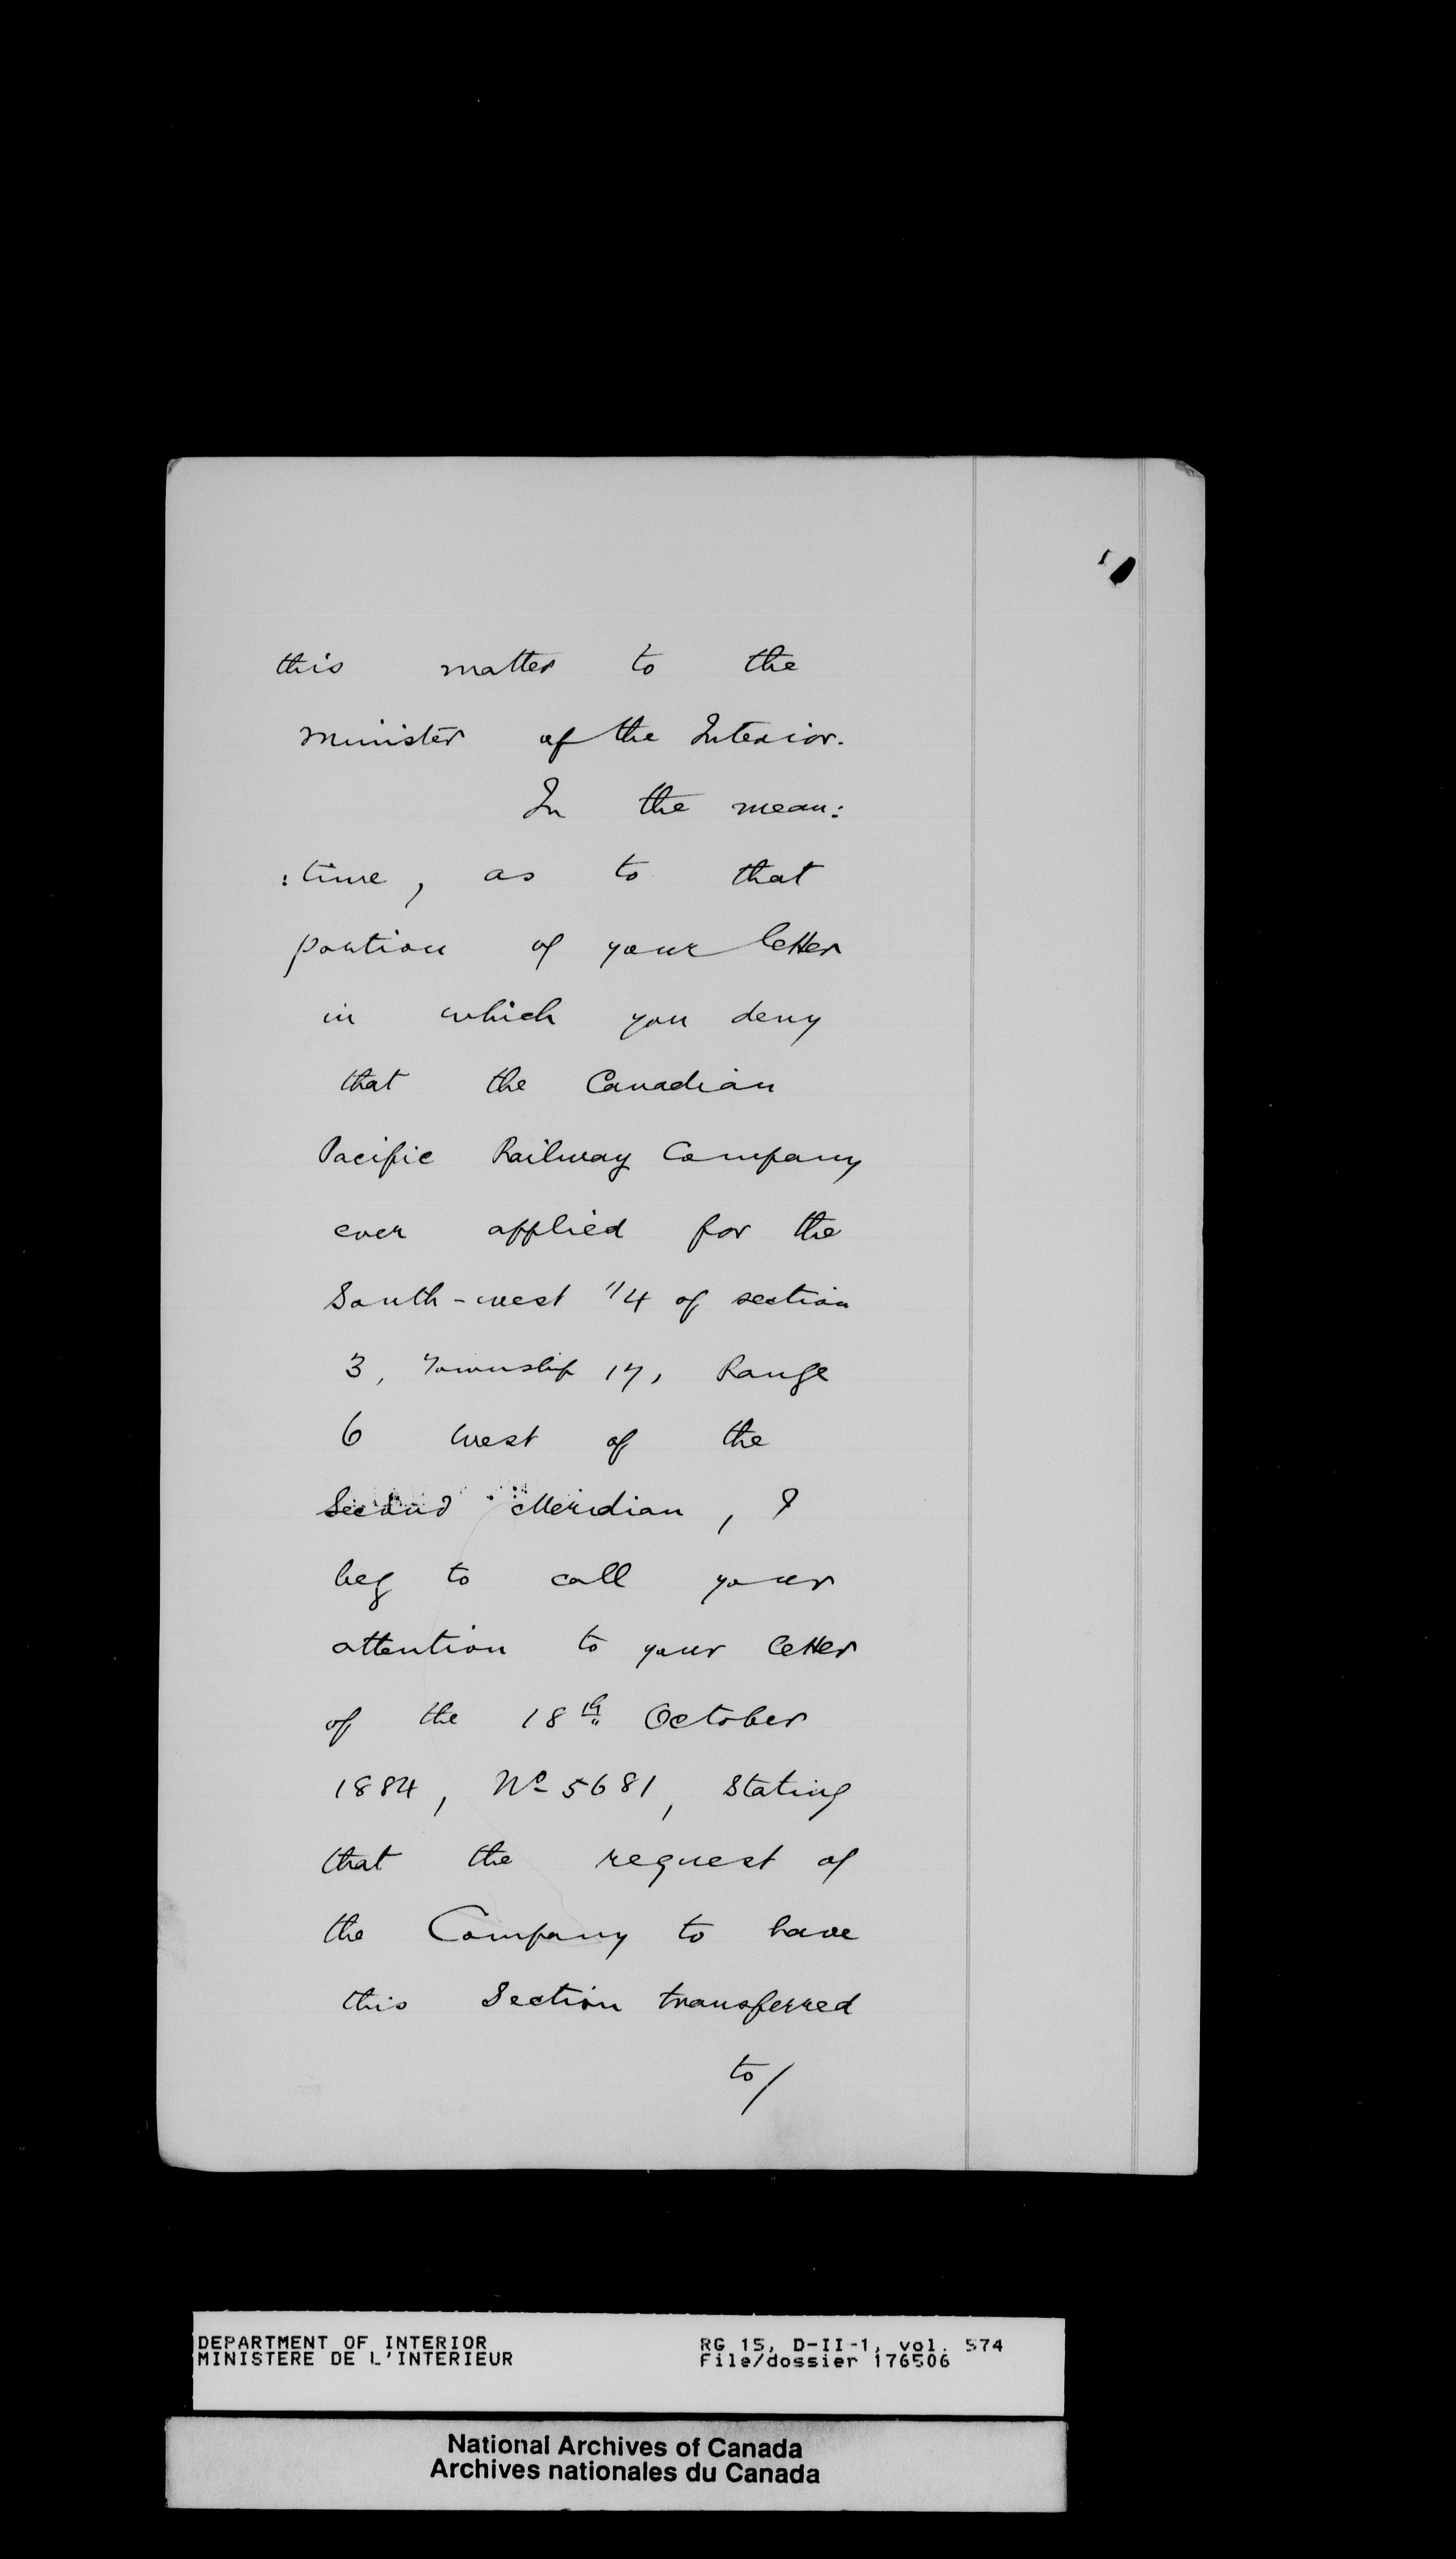 this matter to the
minister of the Interior.
In the mean:
:time, as to that
portion of your letter
in which you deny
that the Canadian
Pacific Railway Company
ever applied for the
South-west 1/4 of section
3, Township 17, Range
6 west of the
Second Meridian, I
beg to call your
attention to your letter
of the 18th October
1884, No 5681, stating
that the request of
the Company to have
this Section transferred
to/
DEPARTMENT OF INTERIOR
MINISTERE DE L'INTERIEUR
RG 15, D-II-1, vol. 574
File/dossier 176506
National Archives of Canada
Archives nationales du Canada